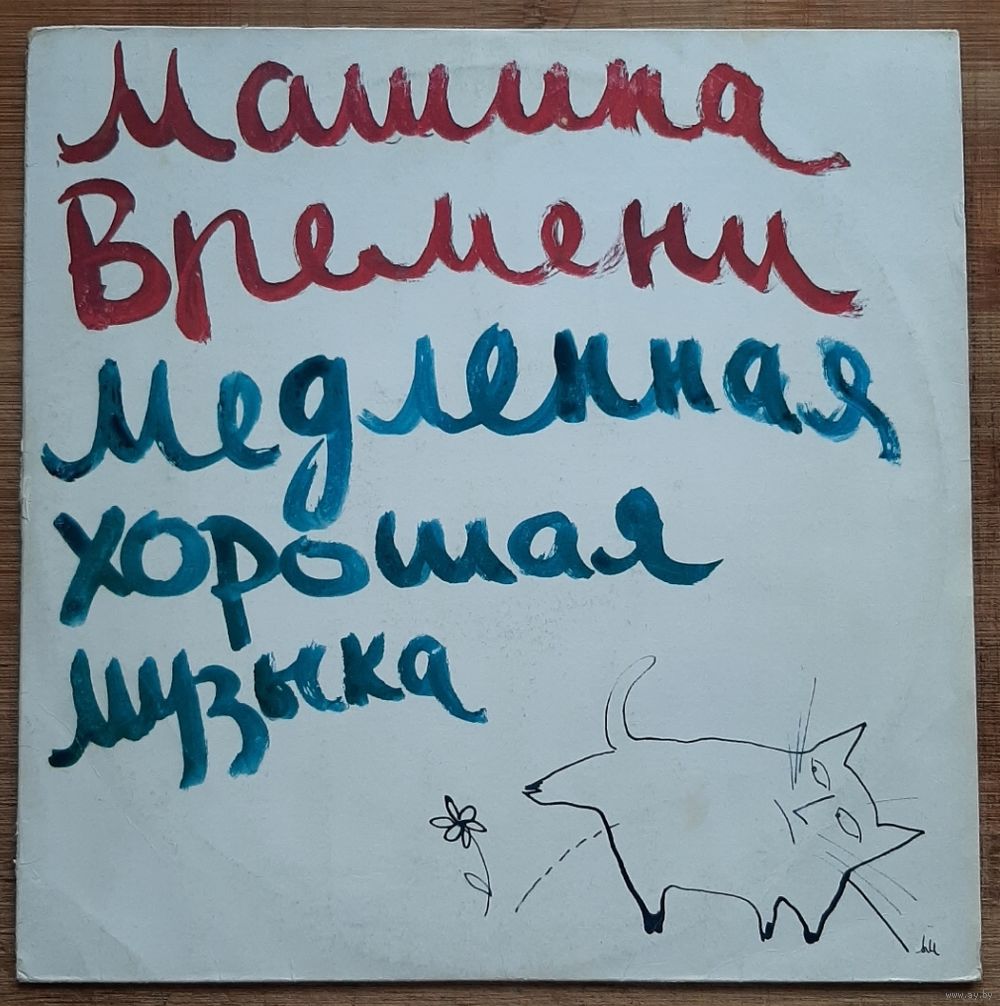 Машина
Времени
медленная
хорошая
музыка
www.ay.by